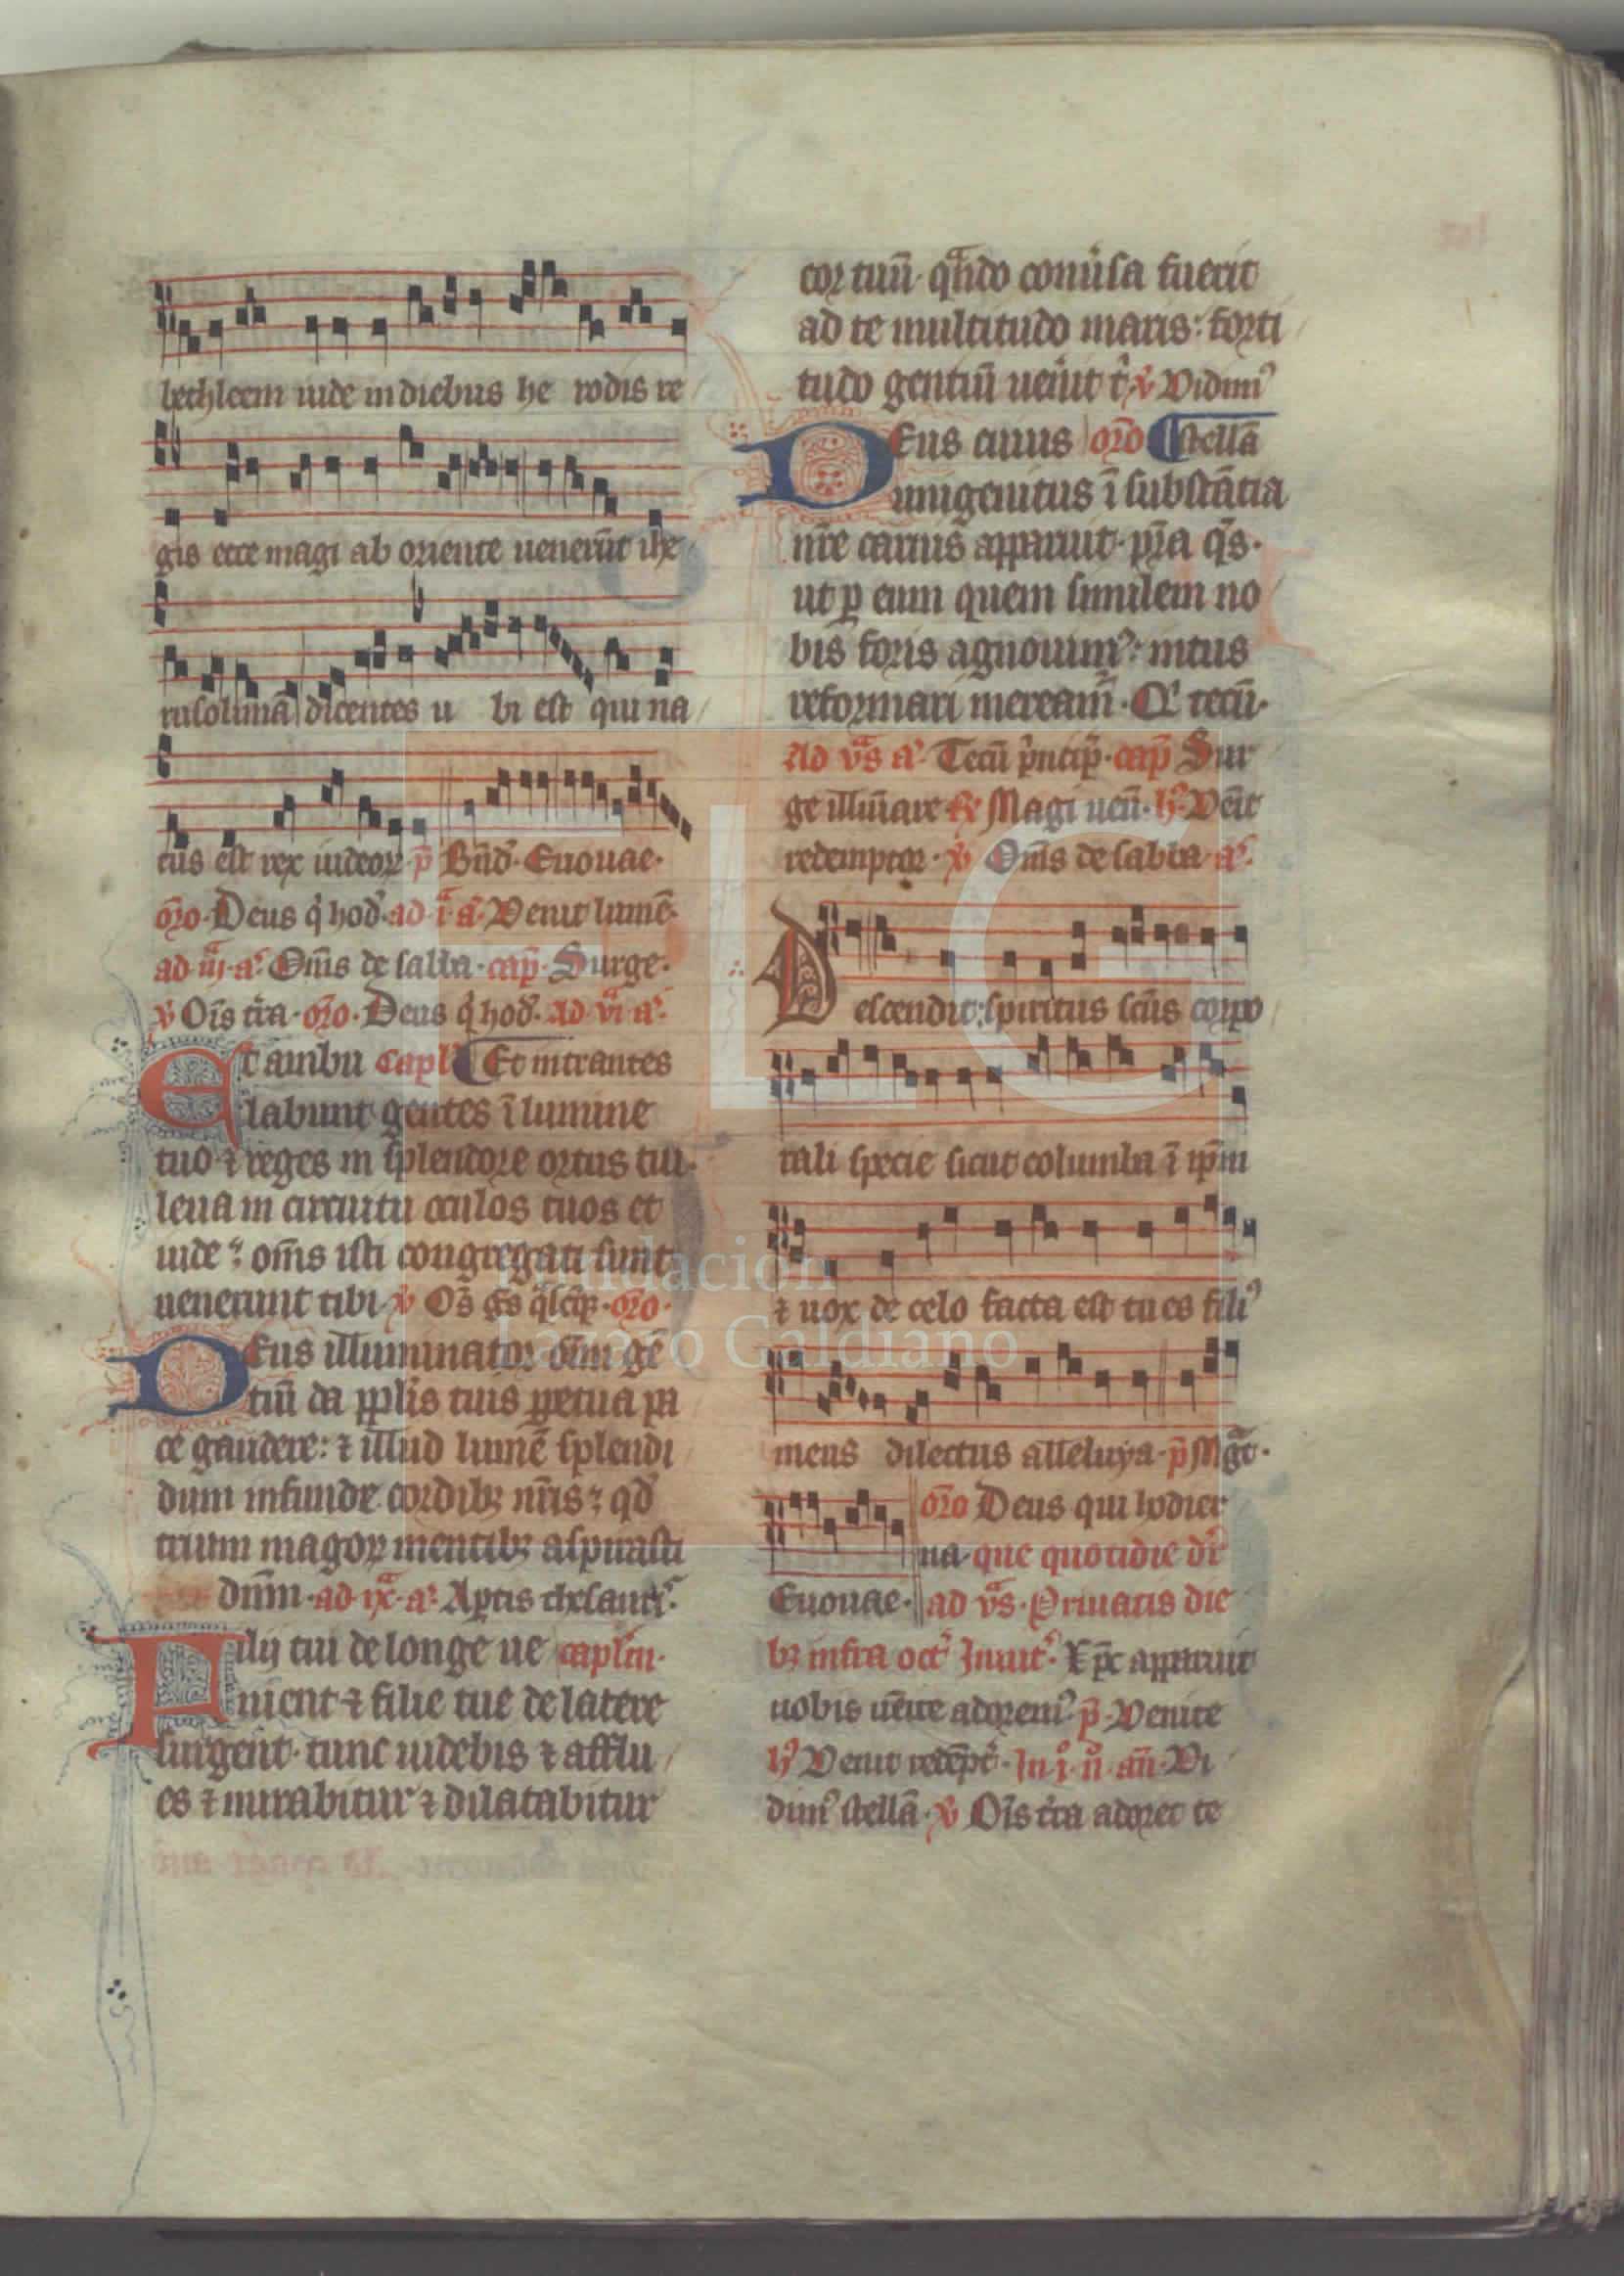 bethleem iude in diebus he rodis re
gis ecce magi ab oriente uenerūt ihe
rusolimā dicentes u bi est qui na
tus est rex iudeoꝝ p̄ Bn̄d. Euouae.
or̄o. Deus q̍ hod̉. ad .i.ª aª. Venit lumē.
ad .iij.ª aª. Om̄s de saba. cap̄. Surge.
℣ Oīs t̉ra. or̄o. Deus q̍ hod̉. ad vi.ª aª.
Et ambu Capl̉ ¶ Et intrantes
labunt gentes ī lumine
tuo ⁊ reges in splendore ortus tui.
leua in circuitu oculos tuos et
uide: om̄s isti congregati sunt
uenerunt tibi ℣ or̄o.
Deus illuminator om̄iū gē
tiū da pplis tuis ꝑpetua pa
ce gaudere: ⁊ illud lumē splendi
dum infunde cordibꝫ nr̄is: qd̉
trium magoꝝ mentibꝫ aspirasti
dn̄m. ad .ix.ª aª.
Filij tui de longe ue caplm̄.
nient ⁊ filie tue de latere
surgent. tunc uidebis ⁊ afflu
es ⁊ mirabitur ⁊ dilatabitur
cor tuū. qn̄do conủsa fuerit
ad te multitudo maris: forti
tudo gentiū uen̉it t̉ ℣ Vidim̉
Deus cuius or̄o ¶ stellā
unigenitus ī substātia
nr̄e carnis apparuit. pr̄a q̄s.
ut ꝑ eum quem similem no
bis foris agnouim̉: intus
reformari meream̉. Q̉ tecū.
Ad v̄s aª. Tecū p̉ncip̄. cap̄ Sur
ge illūiare ℟ Magi ueū. hꝰ. Venit
redemptor. ℣ Om̄s de saba. aª.
Descendit: spiritus sc̄us corpo
rali specie sicut columba ī ip̄m
⁊ uox de celo facta est tu es filiꝰ
meus dilectus alleluya. p̄ Mag̉t.
or̄o Deus qui hodier
na. que quotidie dr̄
Euouae. ad v̄s. Priuatis die
bꝫ infra oct̉ Inuit̉. Xp̄c apparuit
nobis uēite adorem̉. p̄. Venite
hꝰ Venit redēpt̉. In .i. n̊. an̄. Vi
dimꝰ stellā. ℣ Oīs t̉ra adoret te
Fundación
Lázaro Galdiano
FLG